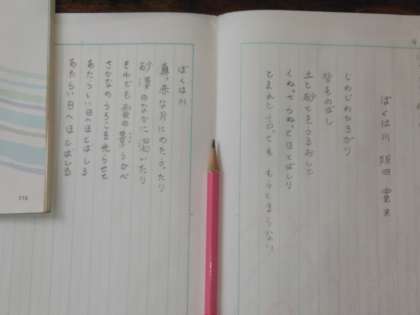 ぼくは川 阪田 寛夫
じわじわひろがり
背をのばし
土と砂とをうるおして
くねって うねって ほとばしり
とまれと言っても もうとまらない
ぼくは川
真っ赤な月にのたうったり
砂漠のなかに渇いたり
それでも雲の影うかべ
さかなのうろこを光らせて
あたらしい日へほとばしる
あたらしい日へほとばしる